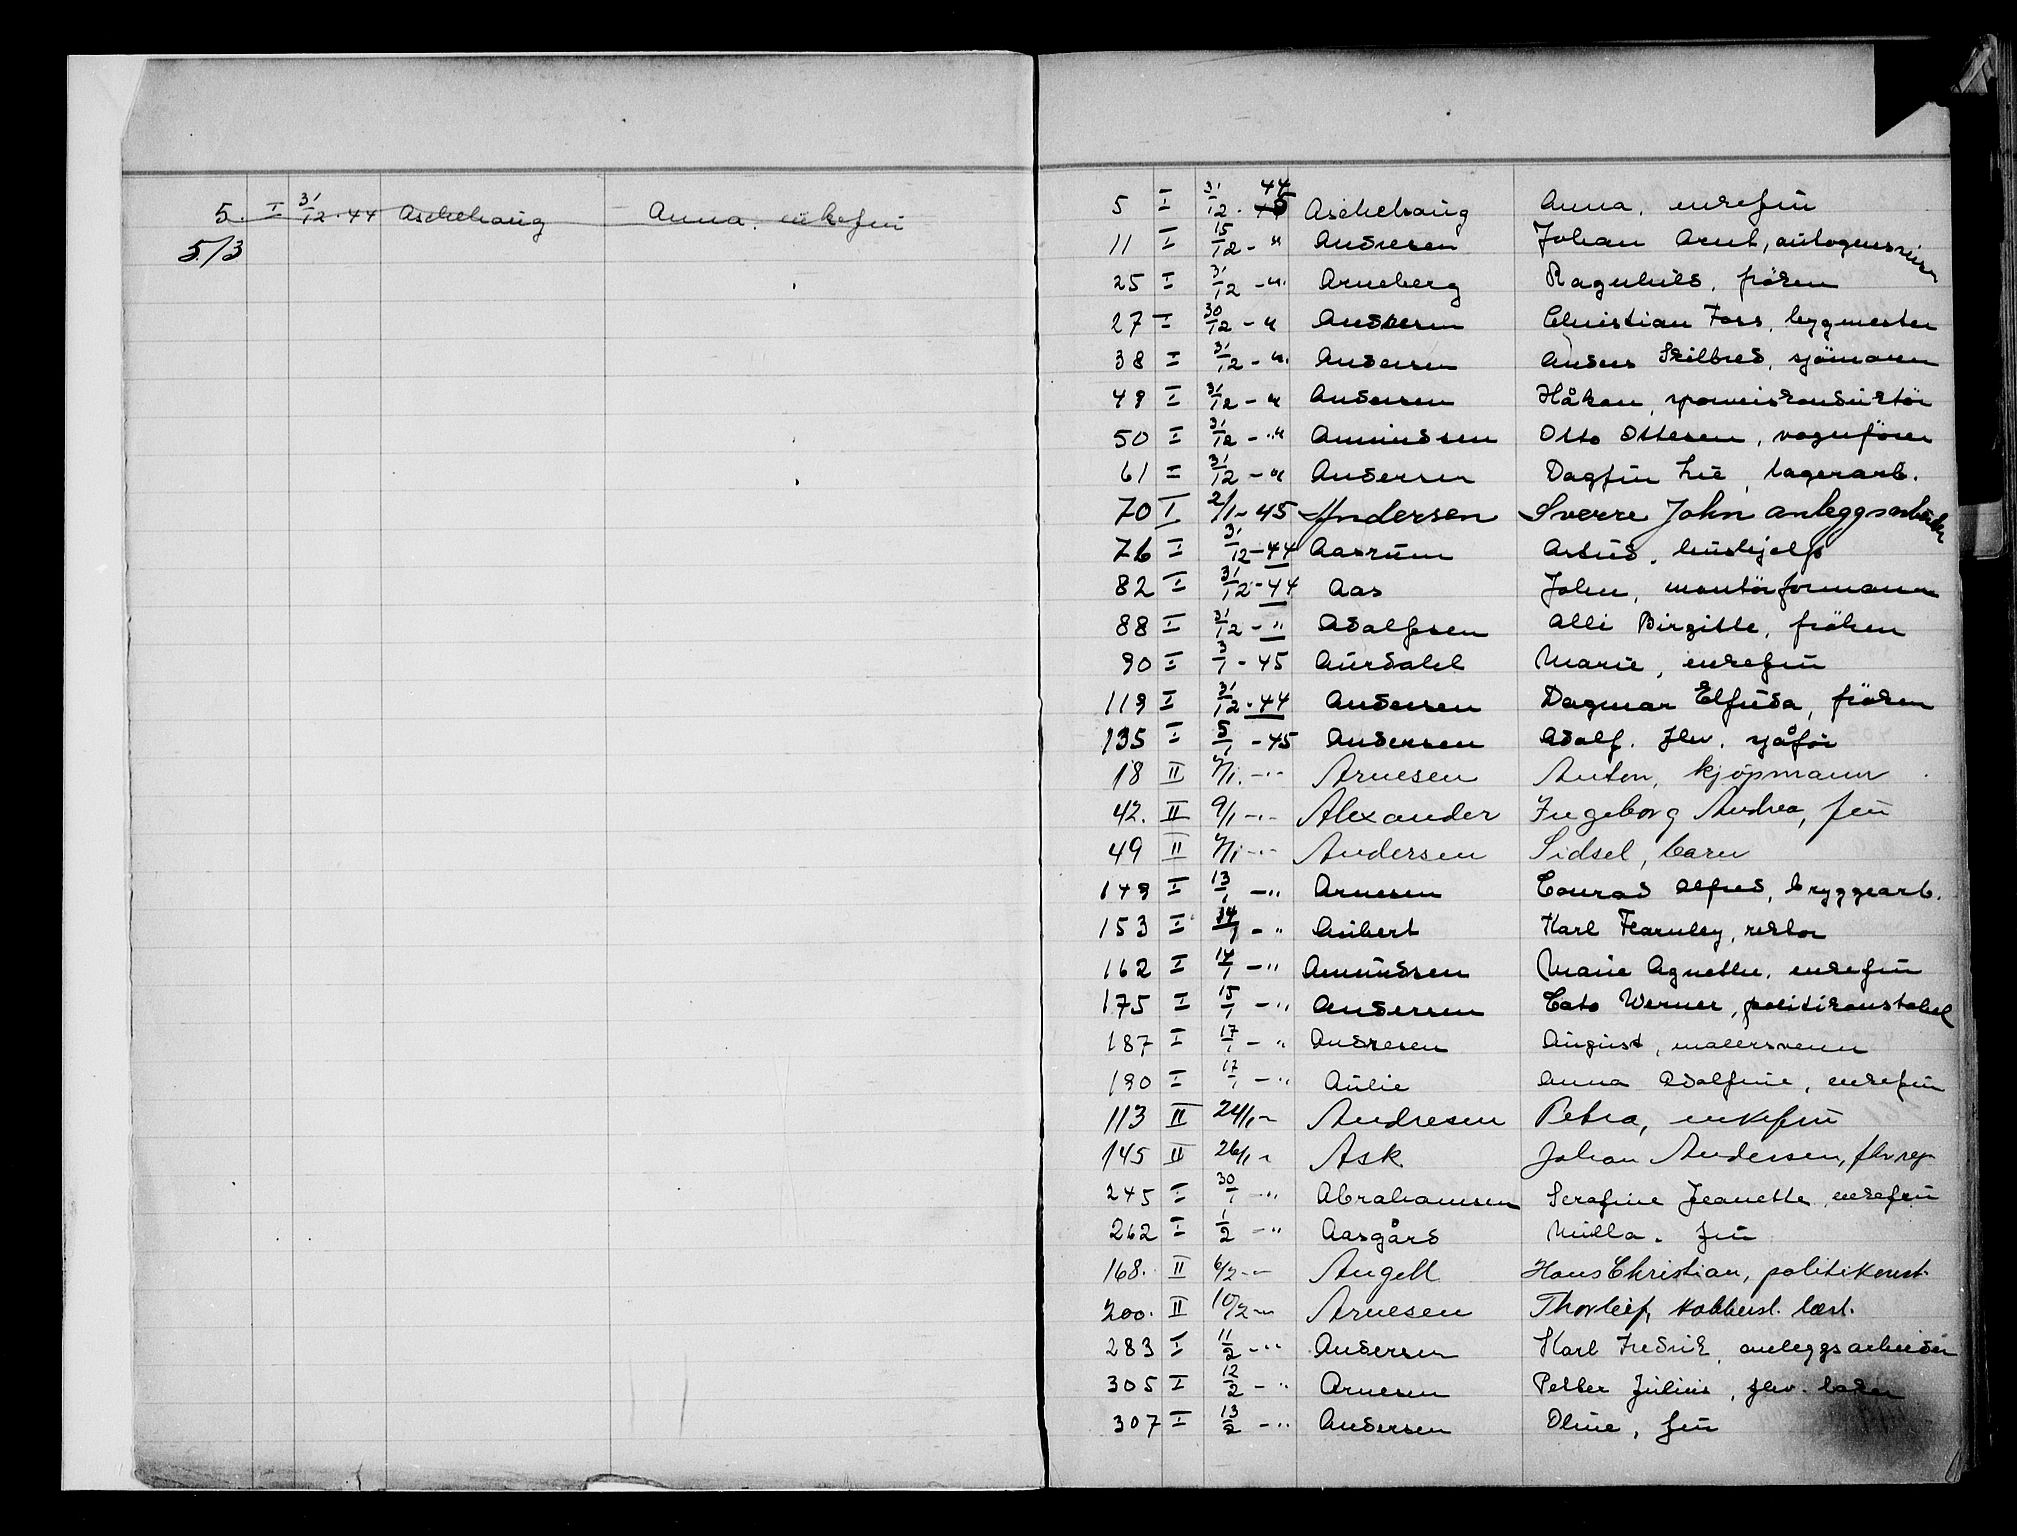 5. I 31/12-44 Aschehoug Anna, enkefru
5/3
5 I 31/12-44 Aschehoug Anna, enkefru
11 I 15/12-" Andresen Johan Arnt,
25 I 31/12-" Arneberg Ragnhild, frøken
27 I 30/12-" Andresen Christian Foss, bygmester
38 I 31/12-" Andersen Anders Skilbred, sjömann
49 I 31/12-" Andersen Håkon,
50 I 31/12-" Amundsen Otto Ottesen, vognfører
61 I 31/12-" Andersen Dagfin Lie, lagerarb.
70 I 2/1-45 Andersen Sverre John anleggsarbeider
76 I 31/12-44 Aasrum Astrid, hushjelp
82 I 31/12-44 Aas John, montörformann
88 I 31/12-" Adolfsen Alli Birgitte, fröken
90 I 3/1-45 Aurdahl Marie, enkefru
119 I 31/12-44 Andersen Dagmar Elfrida, fröken
135 I 5/1-45 Andersen Adolf, fhv. sjåför
18 II /1-"- Arnesen Anton, kjøpmann
42. II 9/1-"- Alexander Ingeborg Andrea, fru
49 II /1-"- Andersen Sidsel, barn
149 I 13/1-" Arnesen Conrad Alfred, bryggearb.
153 I 14/1-" Aubert Karl Fearnley, rektor
162 I 14/1-" Amundsen Marie Agnethe, enkefru
175 I 15/1-" Andersen Cato Werner, politikonstabel
187 I 17/1-" Andresen August, malersvenn
190 I 17/1-" Aulie Anna Adolfine, enkefru
113 II 24/1-" Andresen Petra, enkefru
145 II 26/1-" Ask Johan Andersen,
245 I 30/1-" Abrahamsen Serafine Jeanette, enkefru
262 I 1/2-" Aasgård Milla, fru
168. II 6/2-" Angell Hans Christian, politikonst.
200. II 10/2-" Arnesen Thorleif, kobbersl. lærl.
283 I 11/2-"" Andersen Karl Fredrik, anleggsarbeider
305 I 12/2-" Arnesen Petter Julius, fhv. baker
307 I 13/2-" Andersen Oline, fru